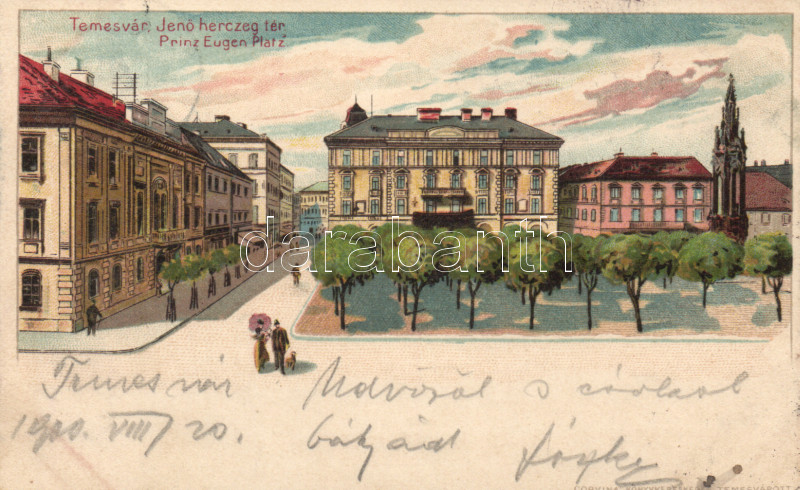 Temesvár, Jenő herczeg tér
Prinz Eugen Platz
darabanth.com
Temesvár
1900. VIII / 20.
Üdvözöl s csókol
bátyád